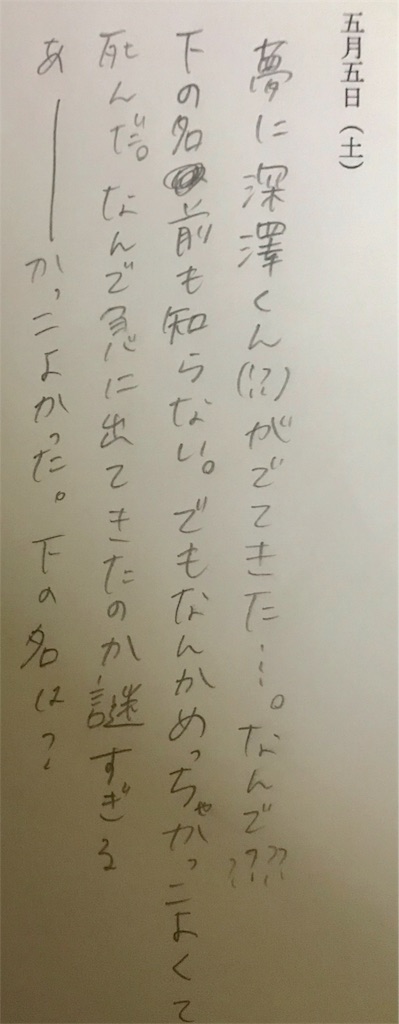 五月五日（土）
夢に深澤くん(!?)がでてきた…。なんで????
下の名前も知らない。でもなんかめっちゃかっこよくて
死んだ。なんで急に出てきたのか謎すぎる
あ――かっこよかった。下の名は?